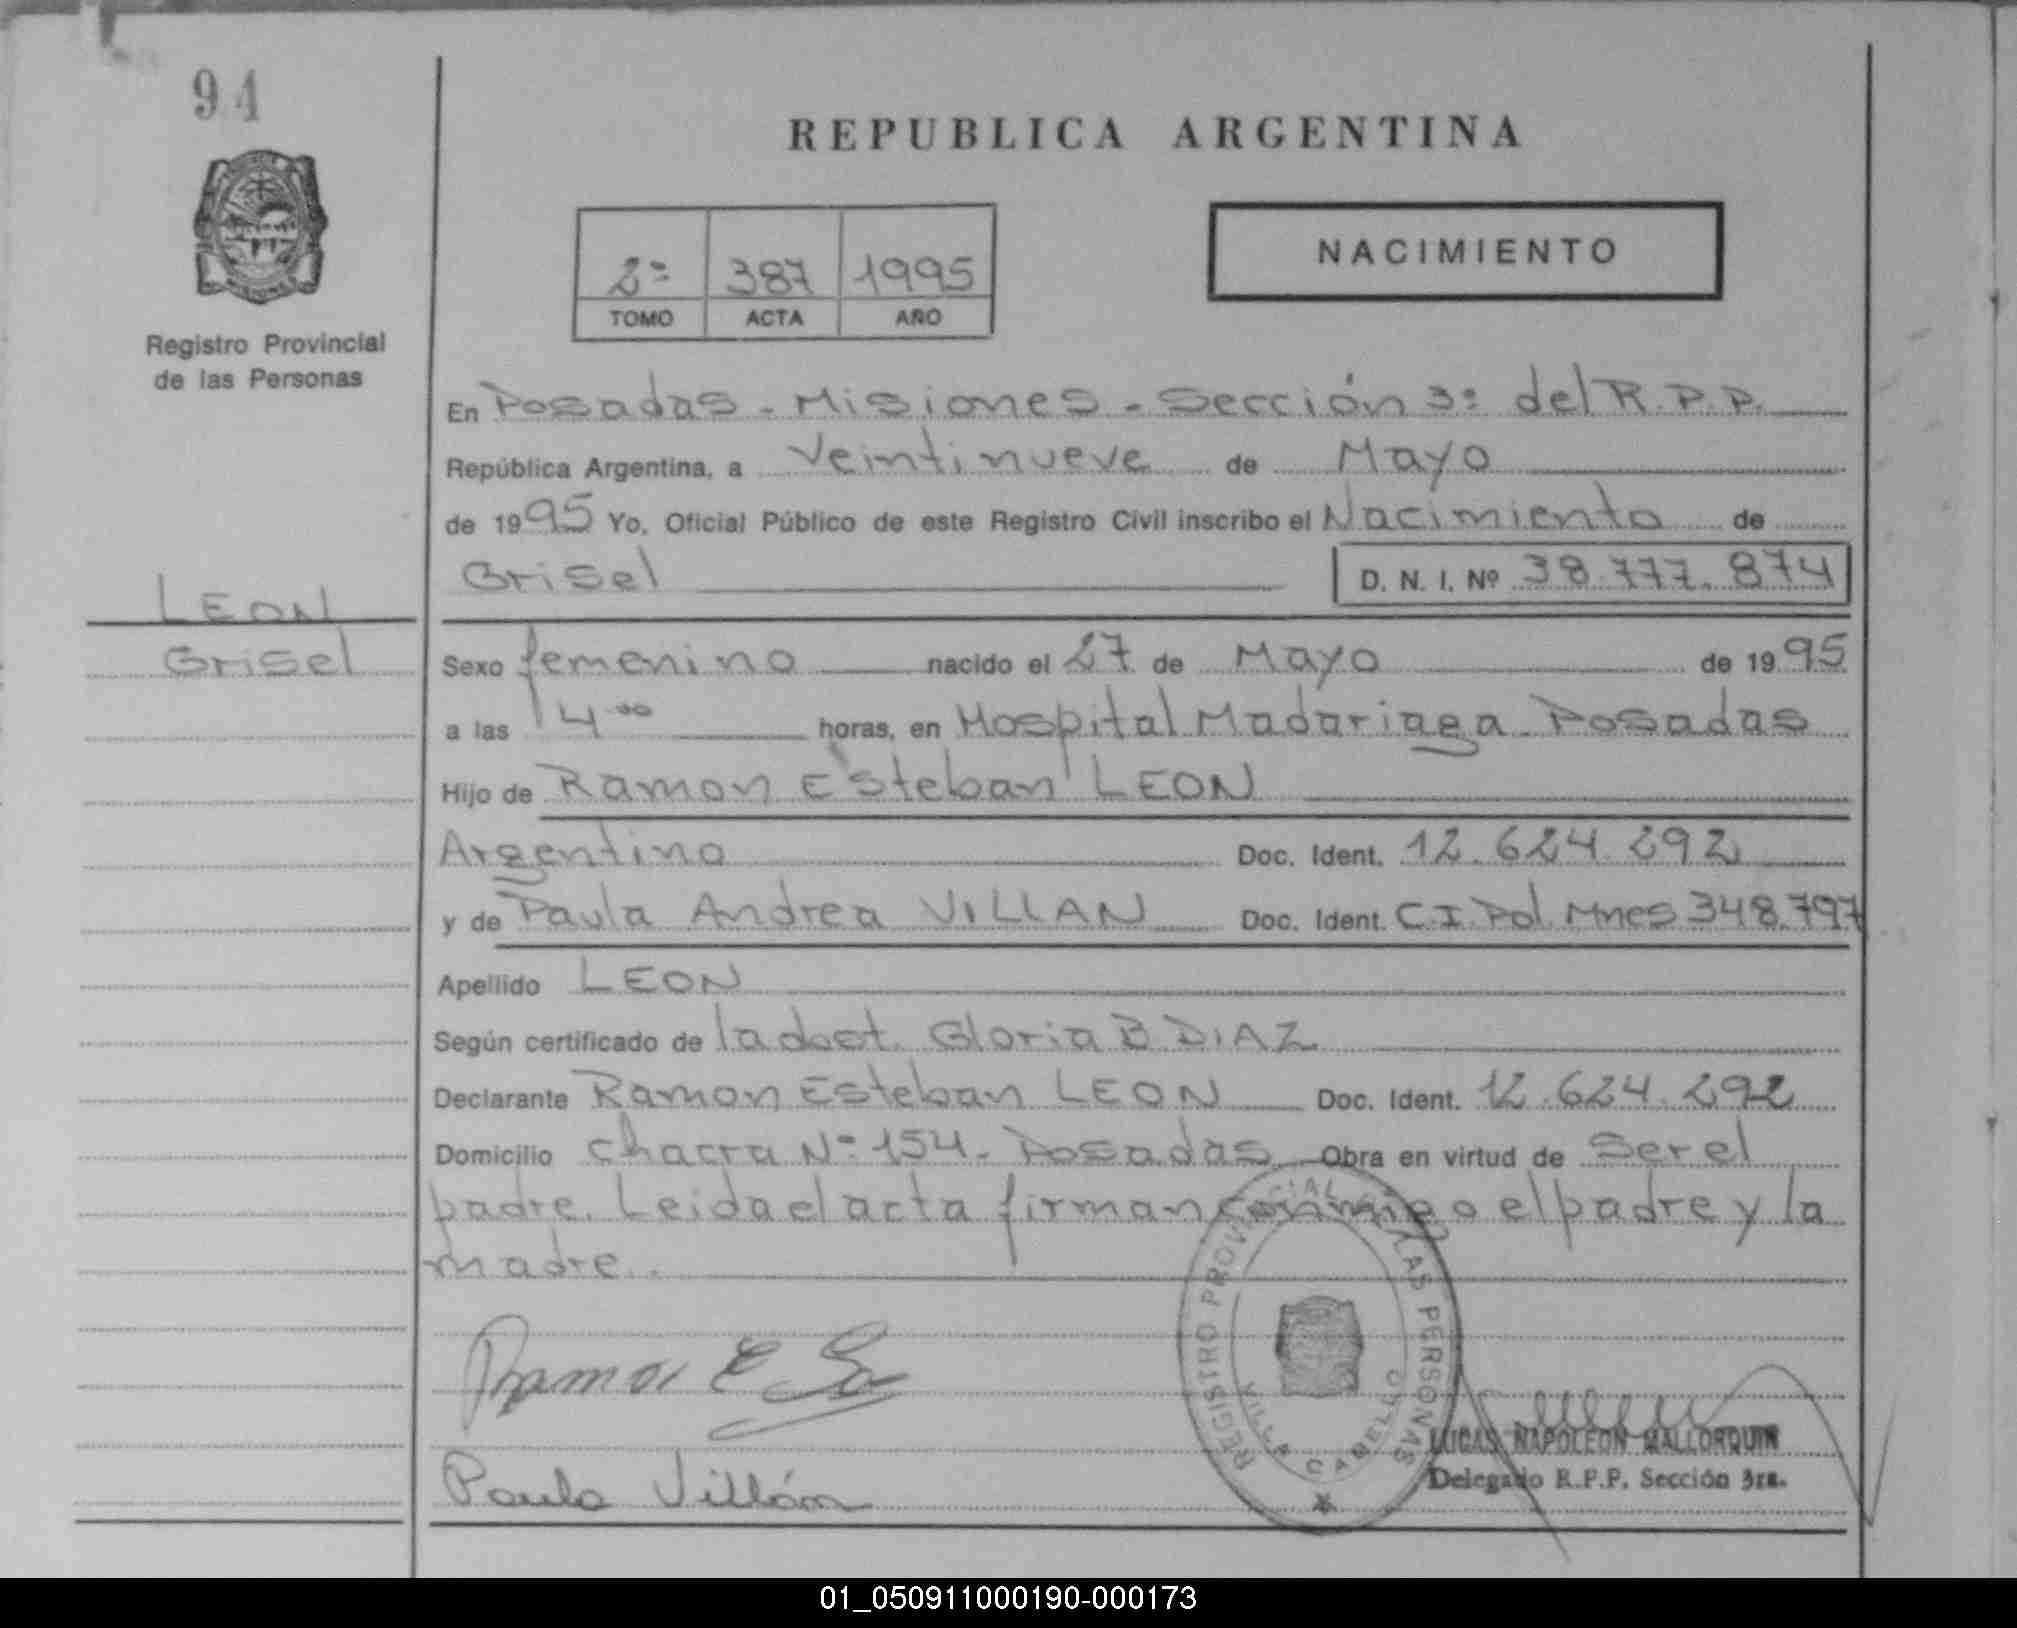 94
REPUBLICA ARGENTINA
NACIMIENTO
2º 387 1995
TOMO ACTA AÑO
Registro Provincial
de las Personas
En Posadas - Misiones - Sección 3º del R.P.P.
República Argentina, a Veintinueve de Mayo
de 1995 Yo, Oficial Público de este Registro Civil inscribo el Nacimiento de
Grisel D. N. I. Nº 38.777.874
LEON
Grisel
Sexo femenino nacido el 27 de Mayo de 1995
a las 14 00 horas, en Hospital Madariaga - Posadas
Hijo de Ramon Esteban LEON
Argentino Doc. Ident. 12.624.292
y de Paula Andrea VILLAN Doc. Ident. C.I. Pol. Mnes 348.797
Apellido LEON
Según certificado de la doct. Gloria B DIAZ
Declarante Ramon Esteban LEON Doc. Ident. 12.624.292
Domicilio Chacra Nº 154 - Posadas Obra en virtud de Ser el
padre. Leida el acta firman conmigo el padre y la
madre.
REGISTRO PROVINCIAL LAS PERSONAS
VILLA CABELLO
Ramon E
Paula Villán
LUCAS NAPOLEON MALLORQUIN
Delegado R.P.P. Sección 3ra.
01_050911000190-000173